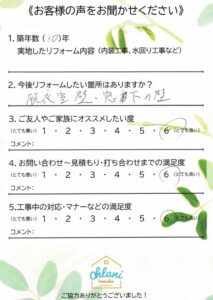 《お客様の声をお聞かせください》
1. 築年数 (30)年
実地したリフォーム内容（内装工事、水回り工事など）
2. 今後リフォームしたい箇所はありますか？
脱衣室壁・窓下の壁
3. ご友人やご家族にオススメしたい度
(とても悪い) 1・2・3・4・5・6 (とても良い)
コメント:
4. お問い合わせ〜見積もり・打ち合わせまでの満足度
(とても悪い) 1・2・3・4・5・6 (とても良い)
コメント:
5.工事中の対応・マナーなどの満足度
(とても悪い) 1・2・3・4・5・6 (とても良い)
コメント:
ohlani
ご協力ありがとうございました！